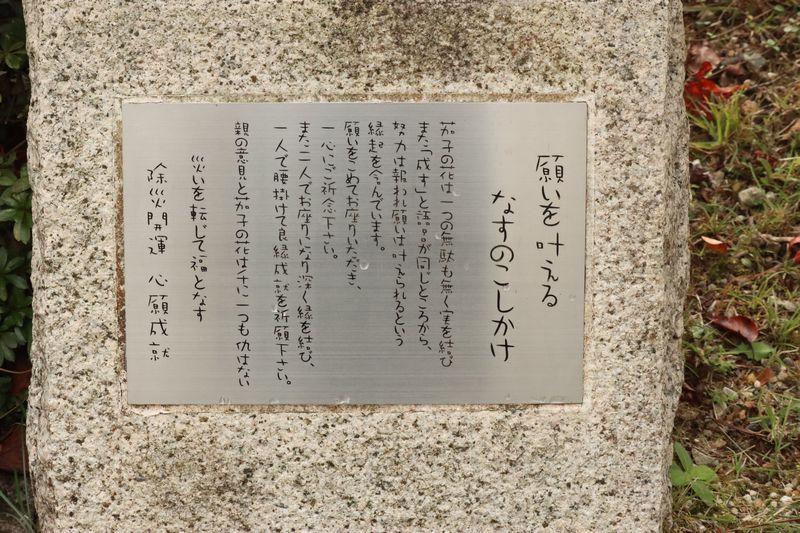 願いを叶える
なすのこしかけ
茄子の花は一つの無駄も無く実を結び
また「成す」と語呂が同じところから、
努力は報われ願いは叶えられるという
縁起を含んでいます。
願いをこめてお座りいただき、
一心にご祈念下さい。
また二人でお座りになり深く縁を結び、
一人で腰掛けて良縁成就を祈願下さい。
親の意見と茄子の花は千に一つも仇はない
災いを転じて福となす
除災開運 心願成就